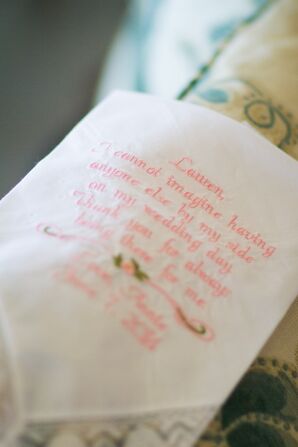 Lauren,
I cannot imagine having
anyone else by my side
on my wedding day.
Thank you for always
being there for me.